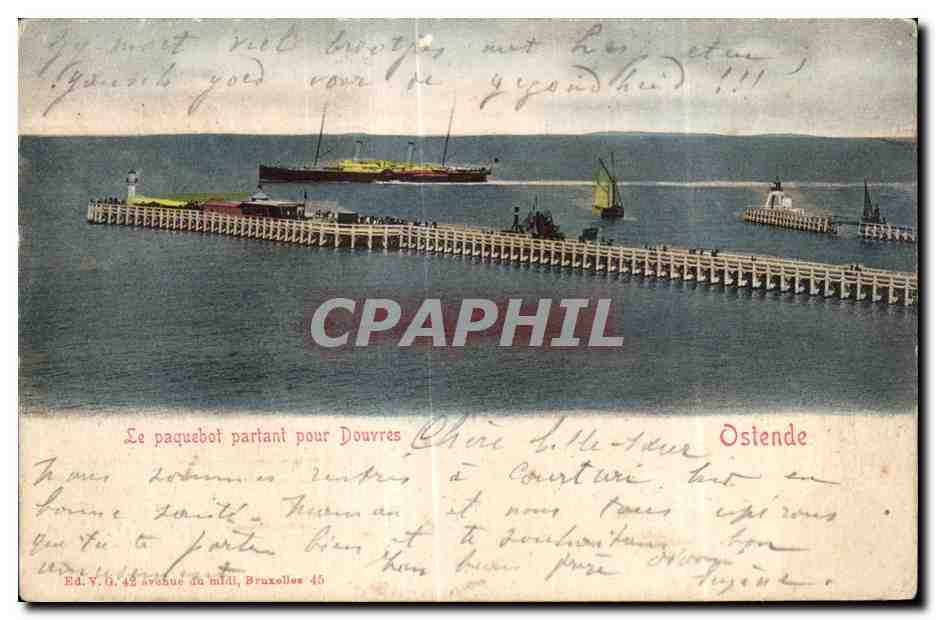 Gy moet viel brootjes met
goed voor de gezondheid !!!
CPAPHIL
Le paquebot partant pour Douvres
Ostende
Chère belle-sœur
Nous sommes rentrés à Courtrai en
bonne santé. Maman et nous tous espérons
que tu te portes bien et te souhaitons bon
amusement Ton beau frère
Eugène.
Ed. V. G. 42 avenue du midi, Bruxelles 45